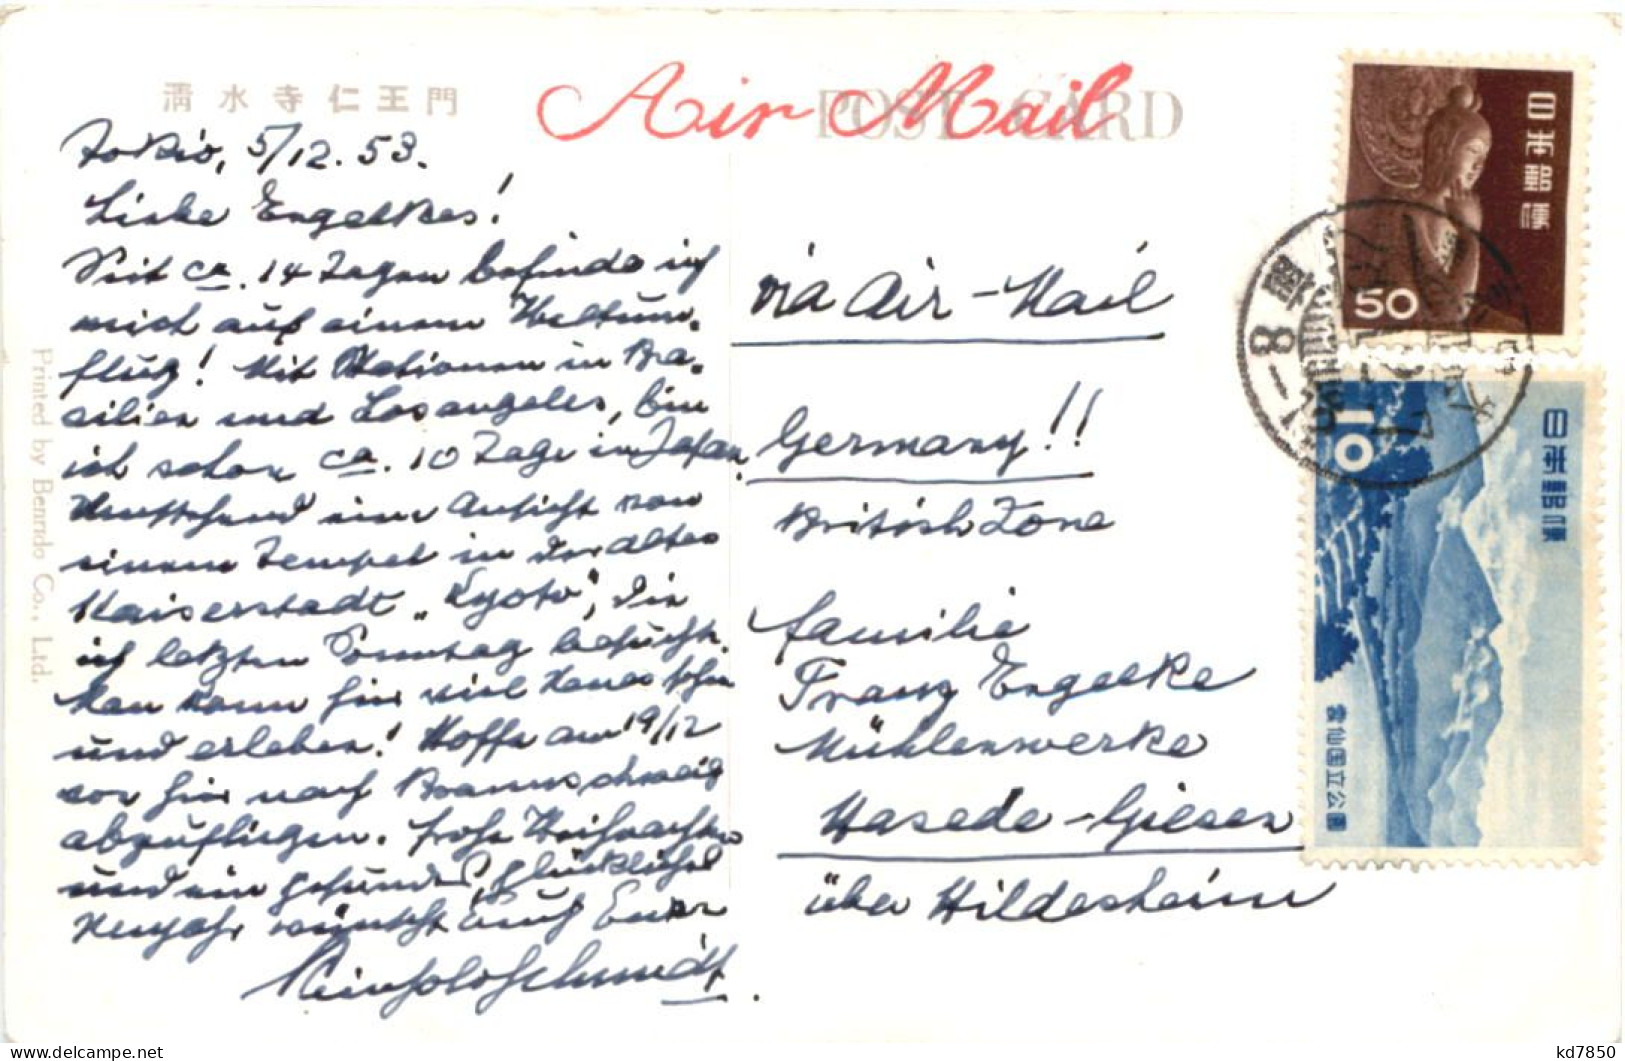 清水寺仁王門
POST CARD
Air Mail
Tokio, 5/12.53.
Liebe Engelkes!
Seit ca. 14 Tagen befinde ich
mich auf einem Weltum-
flug! Mit Stationen in Bra-
silien und Losangeles, bin
ich schon ca. 10 Tage in Japan.
Umstehend eine Ansicht von
einem Tempel in der alten
Kaiserstadt „Kyoto", die
ich letzten Sonntag besuchte.
Man kann hier viel Neues sehen
und erleben! Hoffe am 19/12
von hier nach Braunschweig
abzufliegen. Frohe Weihnachten
und ein gesundes, glückliches
Neujahr wünscht Euch Euer
Reinhold Schmidt.
Printed by Benrido Co., Ltd.
via Air-Mail
Germany!!
British Zone
Familie
Franz Engelke
Mühlenwerke
Hasede-Giesen
über Hildesheim
日本郵便
50
日本郵便
10
雲仙国立公園
kd7850